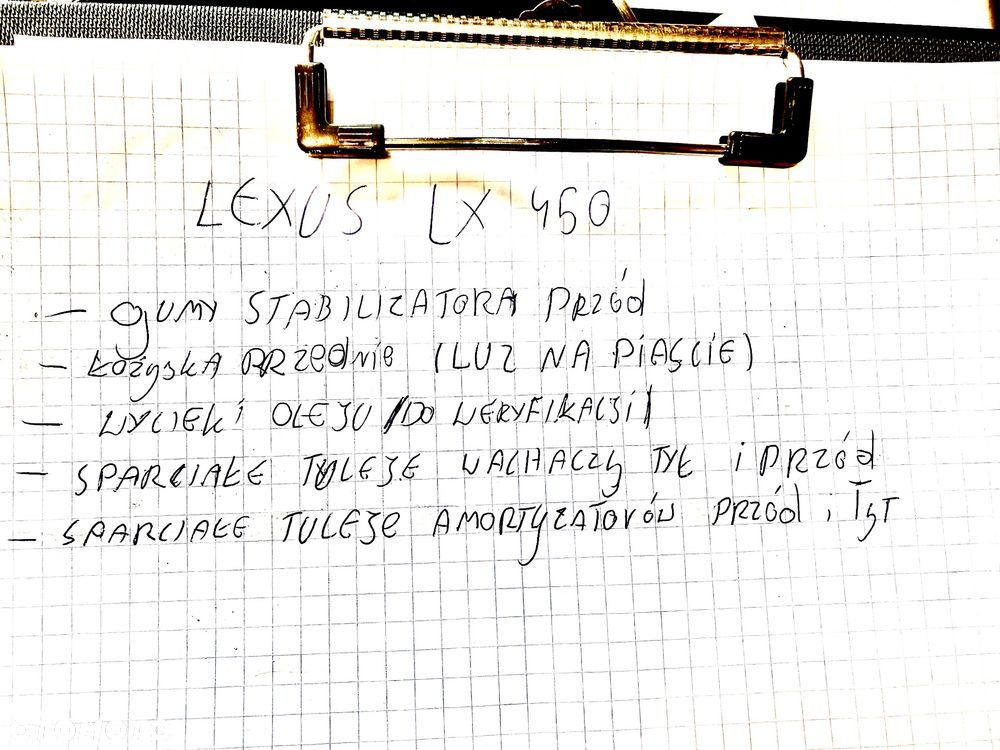 LEXUS LX 450
– GUMY STABILIZATORA PRZÓD
– ŁOŻYSKA PRZEDNIE (LUZ NA PIAŚCIE)
– WYCIEKI OLEJU /DO WERYFIKACJI/
– SPARCIAŁE TULEJE WACHACZY TYŁ i PRZÓD
– SPARCIAŁE TULEJE AMORTYZATORÓW PRZÓD i TYŁ
OTOMOTO